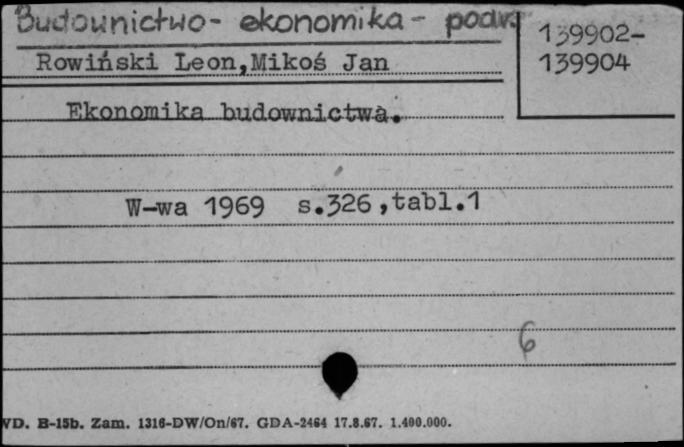 Budownictwo - ekonomika - podr.
139902-
139904
Rowiński Leon,Mikoś Jan
Ekonomika budownictwa.
W-wa 1969 s.326,tabl.1
6
VD. B-15b. Zam. 1316-DW/On/67. GDA-2464 17.8.67. 1.400.000.